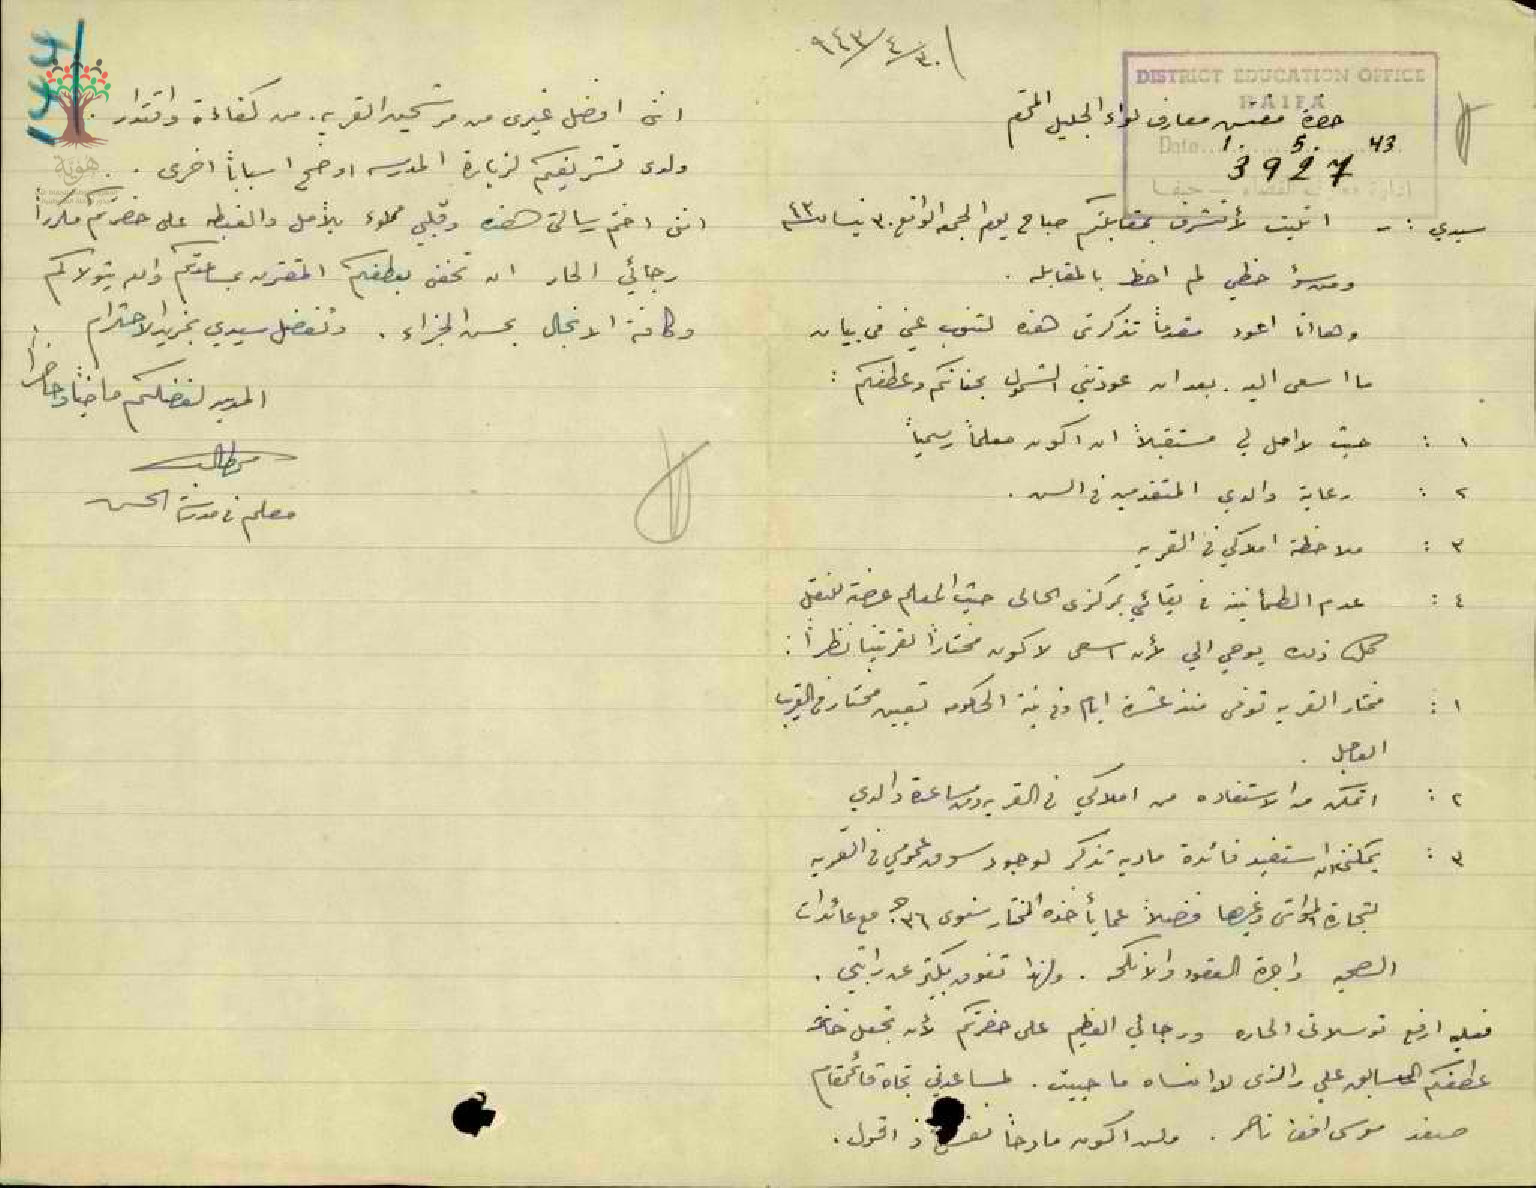 ٩٤٣/٤/٣٠
DISTRICT EDUCATION OFFICE
HAIFA
Date 1. 5. 43
3927
حضرة مفتش معارف لواء الجليل المحترم
سيدي : - اتيت لأتشرف بمقابلتكم صباح يوم الجمعه الواقع ٣٠ نيسان سنة ٤٣
ومن سؤ حظي لم احظ بالمقابله .
وها انا اعود مقدماً تذكرتى هذه لتنوب عني فى بيان
ما اسعى اليه . بعد ان عودتني الشمول بحنانكم وعطفكم :
١ : حيث لا امل لي مستقبلاً ان اكون معلماً رسمياً
٢ : رعاية والدي المتقدمين فى السن .
٣ : ملاحظة املاكي فى القريه
٤ : عدم الطمأنينة فى بقائي بمركزى الحالى حيث المعلم عرضة للنقل
كل ذلك يوحي الي لأن اسعى لاكون مختاراً لقريتنا نظراً :
١ : مختار القريه توفى منذ عشرة ايام وفى نية الحكومه تعيين مختار فى القريب
العاجل .
٢ : اتمكن من الاستفاده من املاكي فى القريه ومساعدة والدي
٣ : يمكنني ان استفيد فائدة ماديه تذكر لوجود سوق عمومي فى القريه
لتجارة المواشى وغيرها فضلاً عما يأخذه المختار سنوى ٣٦ ج مع عائدات
الصحيه واجرة العقود والانكحه . ولهذا تفوق بكثير عن راتبي .
فعليه ارفع توسلاتى الحاره ورجائي العظيم على حضرتكم لأن تجعل
عطفكم السابق علي والذى لا انساه ما حييت . لمساعدتي تجاه قائمقام
صفد موسى افندي ناصر . ولن اكون مادحاً نفسي اذ اقول .
اننى افضل غيرى من مرشحين القريه . من كفاءة واقتدار .
ولدى تشريفكم لزيارة المدرسه اوضح اسباباً اخرى . .
اننى اختم رسالتى هذه وقلبي مملوء بالأمل والغبطه على حضرتكم مكرراً
رجائي الحار ان تحفنى بعطفكم المقترن بمساعدتكم والله يتولاكم
وكافة الانجال بحسن الجزاء . وتفضل سيدي بمزيد الاحترام
المدين لفضلكم ماضياً وحاضراً
معلم فى مدرسة
هوية